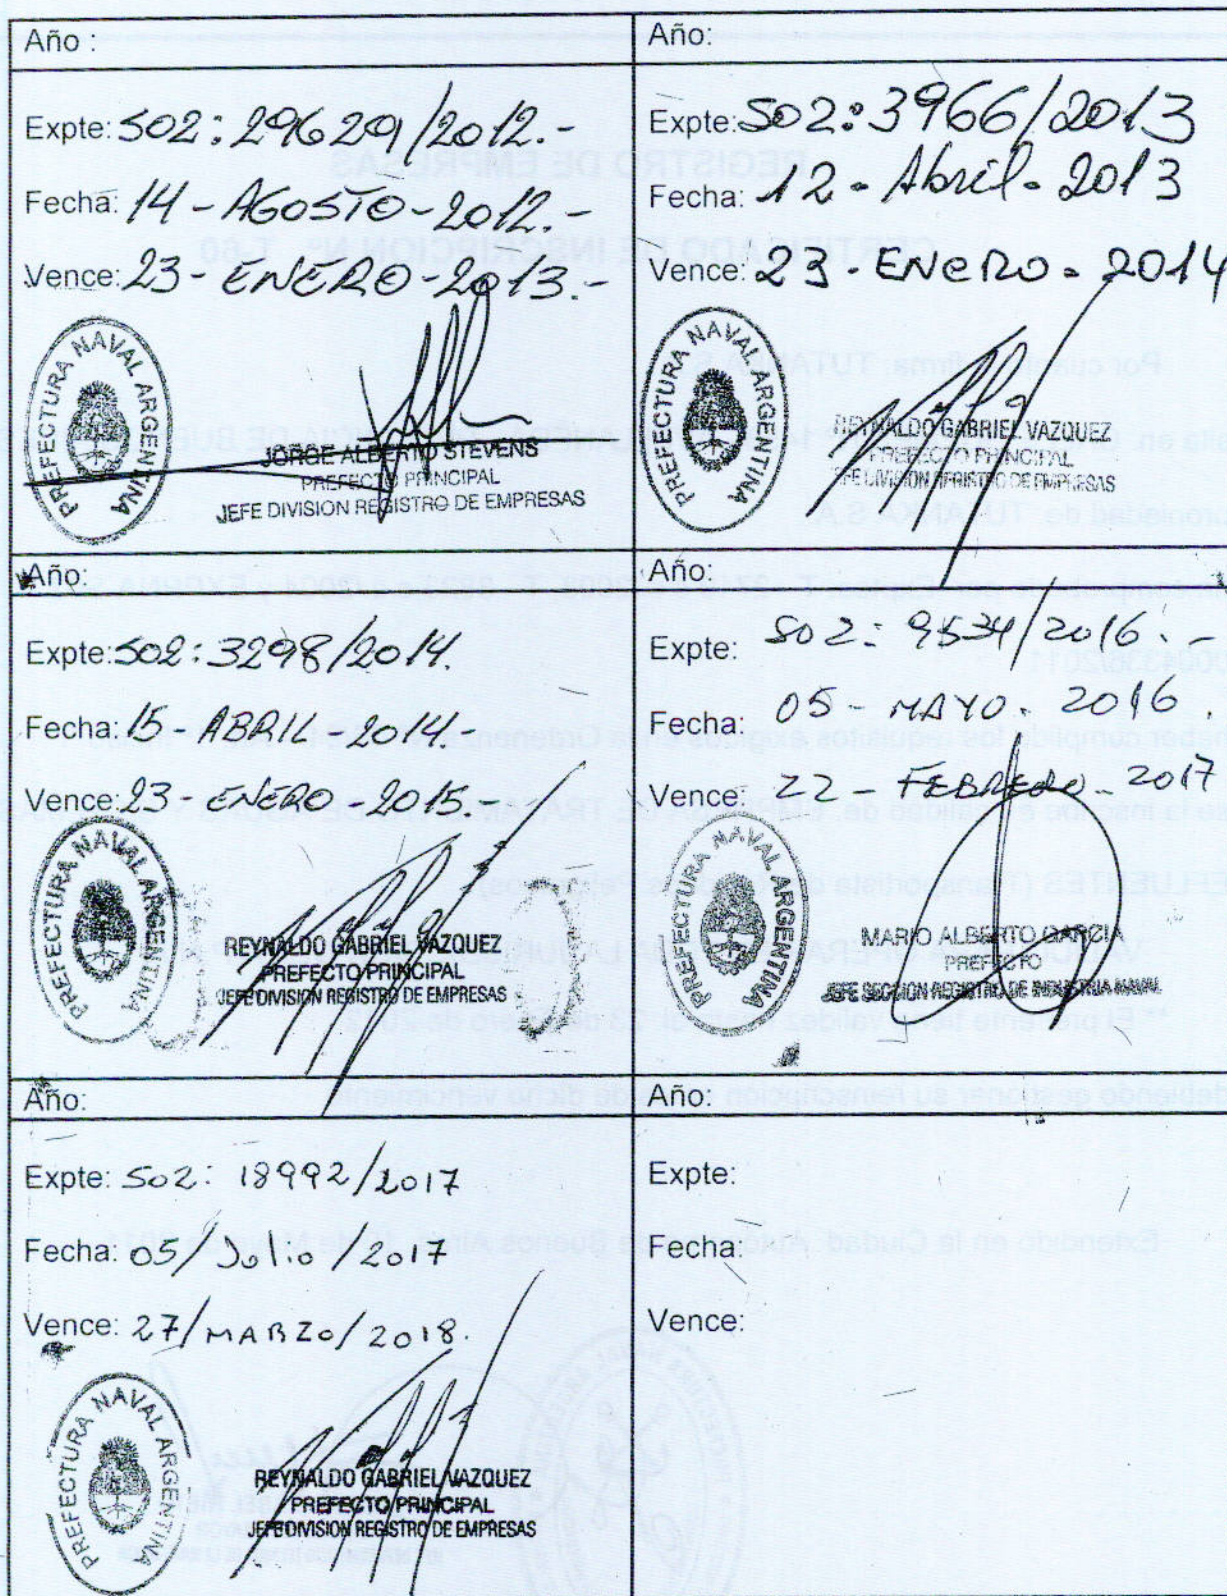 Año :
Expte: S02: 29629/2012.-
Fecha: 14 - AGOSTO - 2012.-
Vence: 23 - ENERO - 2013.-
PREFECTURA NAVAL ARGENTINA
JORGE ALBERTO STEVENS
PREFECTO PRINCIPAL
JEFE DIVISION REGISTRO DE EMPRESAS
Año:
Expte: S02: 3966/2013
Fecha: 12 - Abril - 2013
Vence: 23 - ENERO - 2014
PREFECTURA NAVAL ARGENTINA
REYNALDO GABRIEL VAZQUEZ
PREFECTO PRINCIPAL
JEFE DIVISION REGISTRO DE EMPRESAS
Año:
Expte: S02: 3298/2014.
Fecha: 15 - ABRIL - 2014.
Vence: 23 - ENERO - 2015.
PREFECTURA NAVAL ARGENTINA
REYNALDO GABRIEL VAZQUEZ
PREFECTO PRINCIPAL
JEFE DIVISION REGISTRO DE EMPRESAS
Año:
Expte: S02: 9534/2016.-
Fecha: 05 - MAYO. 2016.
Vence: 22 - FEBRERO - 2017
PREFECTURA NAVAL ARGENTINA
MARIO ALBERTO GARCIA
PREFECTO
JEFE SECCION REGISTRO DE INDUSTRIA NAVAL
Año:
Expte: S02: 18992/2017
Fecha: 05/Julio/2017
Vence: 27/MARZO/2018.
PREFECTURA NAVAL ARGENTINA
REYNALDO GABRIEL VAZQUEZ
PREFECTO PRINCIPAL
JEFE DIVISION REGISTRO DE EMPRESAS
Año:
Expte:
Fecha:
Vence:
REGISTRO DE EMPRESAS
CERTIFICADO DE INSCRIPCION Nº T-60